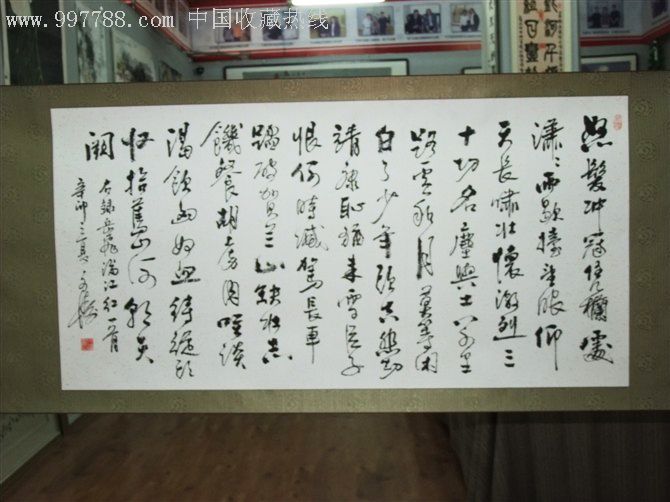 www.997788.com 中国收藏热线
怒髮冲冠凭欄處
瀟々雨歇擡望眼仰
天長嘯壯懷激烈三
十功名塵與土八千里
路雲和月莫等閑
白了少年頭空悲切
靖康恥猶未雪臣子
恨何時滅駕長車
踏破賀兰山缺壯志
饑餐胡虜肉笑談
渴飲匈奴血待從頭
收拾舊山河朝天
闕
右録岳飛滿江红一首
辛卯之夏